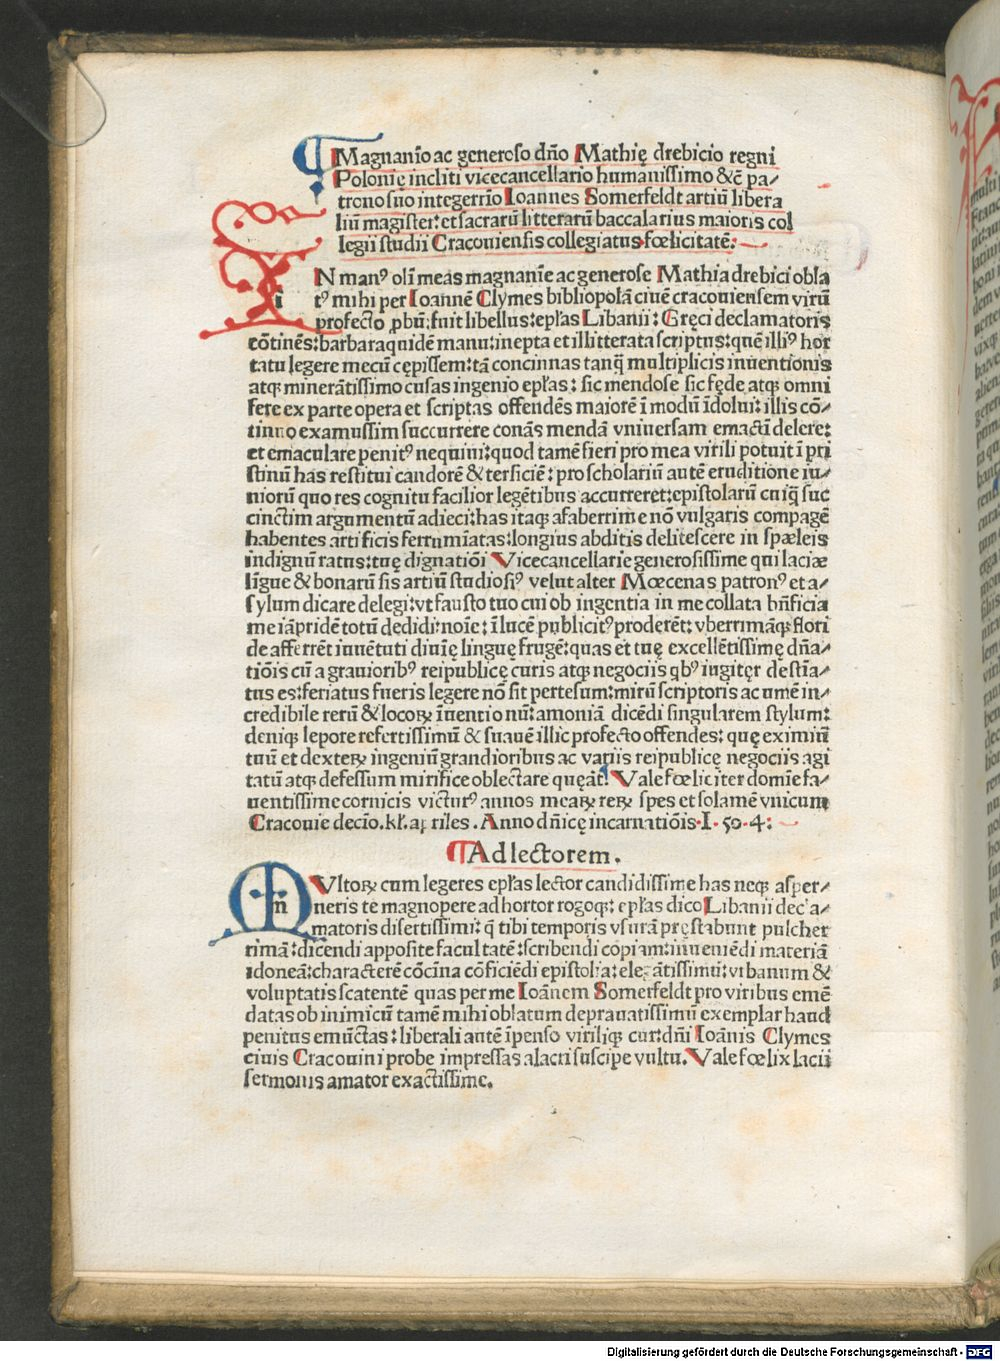 Magnanīo ac generoso dn̄o Mathię drebicio regni
Polonię incliti vicecancellario humanissimo &c̄ pa⸗
trono suo integerrīo Ioannes Somerfeldt artiū libera
liū magister: et sacrarū litterarū baccalarius maioris col
legii studii Cracouiensis collegiatus fœlicitatē:
IN manꝰ olī meas magnanīe ac generose Mathia drebici obla
tꝰ mihi per Ioannē Clymes bibliopolā ciuē cracouiensem virū
profecto ꝓbū: fuit libellus: epłas Libanii: Gręci declamatoris
cōtinēs: barbara quidē manu: inepta et illitterata scriptus: quē illiꝰ hor
tatu legere mecū cępissem: tā concinnas tanꝙ multiplicis inuentionis
atqꝫ minerātissimo cusas ingenio epłas: sic mendose sic fęde atqꝫ omni
fere ex parte opera et scriptas offendēs maiorē ī modū īdolui: illis cō⸗
tinuo examussim succurrere conās mendā vniuersam emactū delere:
et emaculare penitꝰ nequiui: quod tamē fieri pro mea virili potuit ī pri
stinū has restitui candorē & tersiciē: pro scholariū autē eruditione iu⸗
niorū quo res cognitu facilior legētibus accurreret: epistolarū cuiꝗ suc
cinctim argumentū adieci: has itaqꝫ afaberrime nō vulgaris compagē
habentes artificis ferrumīatas: longius abditis delitescere in spæleis
indignū ratus: tuę dignatiōi Vicecancellarie generosissime qui laciæ
līgue & bonarū sis artiū studiosꝰ velut alter Mœcenas patronꝰ et a⸗
sylum dicare delegi: vt fausto tuo cui ob ingentia in me collata bn̄ficia
me iāpridē totū dedidi: noīe: ī lucē publicitꝰ proderēt: vberrimāqꝫ flori
de afferrēt iuuētuti diuię linguę frugē: quas et tuę excellētissimę dn̄a⸗
tiōis cū a grauioribꝰ reipublicę curis atqꝫ negociis qbꝰ iugitęr destīa⸗
tus es: feriatus fueris legere nō sit pertesum: mirū scriptoris acumē in⸗
credibile rerū & locoꝝ īuentionū: amoniā dicēdi singularem stylum:
deniqꝫ lepore refertissimū & suauē illic profecto offendes: quę eximiū
tuū et dexteꝝ ingeniū grandioribus ac variis reipublicę negociis agi
tatū atqꝫ defessum mirifice oblectare queāt: Vale fœliciter domīe fa⸗
uentissime cornicis victurꝰ annos meaꝝ reꝝ spes et solamē vnicum
Cracouie decīo. kł. apriles. Anno dn̄icę incarnatiōis. I. 504:
Ad lectorem.
MVltoꝝ cum legeres epłas lector candidissime has neqꝫ asper⸗
neris te magnopere adhortor rogoqꝫ: epłas dico Libanii decla⸗
matoris disertissimi: ꝗ tibi temporis vsurā pręstabunt pulcher
rimā: dicendi apposite facultatē: scribendi copiam: inueniēdi materiā
idoneā: characterē cōcīna cōficiēdi epistolia: elegātissimū: vrbanum &
voluptatis scatentē quas per me Ioānem Somerfeldt pro viribus emē
datas ob inimicū tamē mihi oblatum deprauatissimū exemplar haud
penitus emūctas: liberali autē īpenso viriliqꝫ cur: dn̄i Ioānis Clymes
ciuis Cracouini probe impressas alacri suscipe vultu. Vale fœlix lacii
sermonis amator exactissime.
m
Digitalisierung gefördert durch die Deutsche Forschungsgemeinschaft - DFG